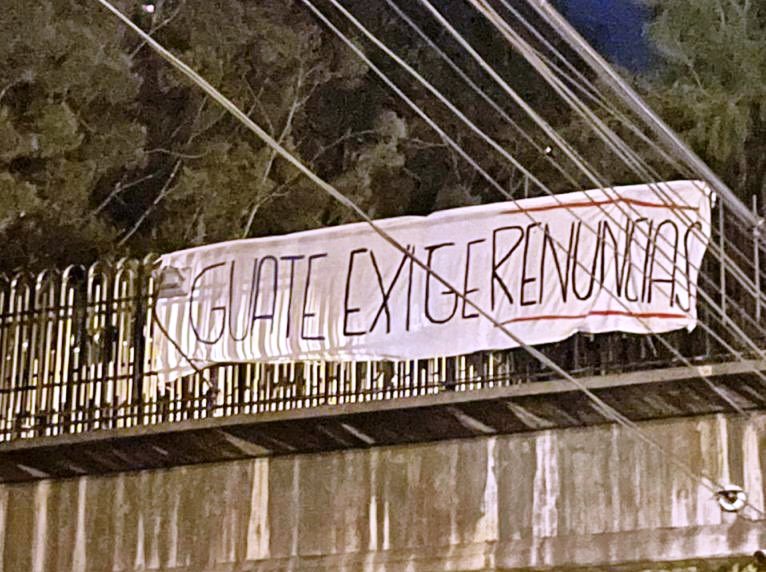 GUATE EXIGE RENUNCIAS